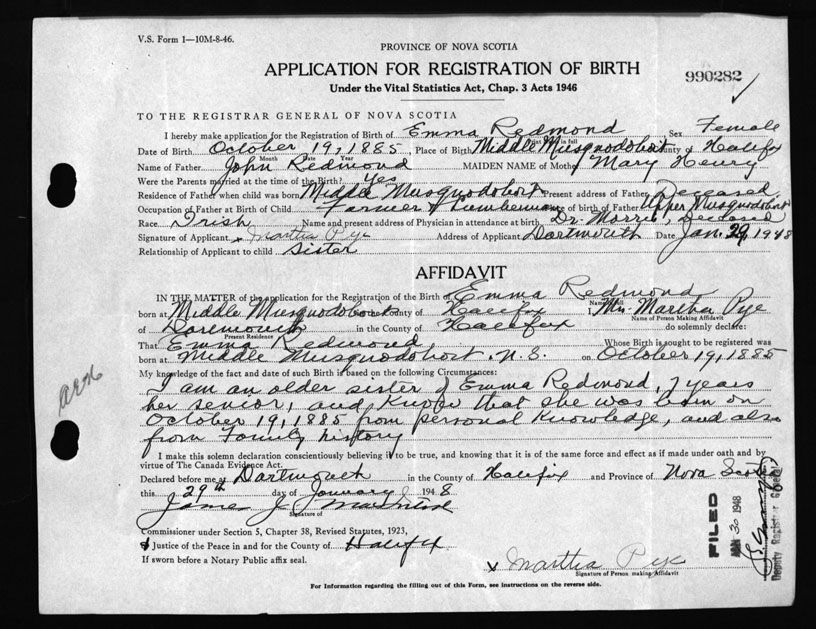 V.S. Form 1—10M-8-46.
PROVINCE OF NOVA SCOTIA
APPLICATION FOR REGISTRATION OF BIRTH
990282
Under the Vital Statistics Act, Chap. 3 Acts 1946
TO THE REGISTRAR GENERAL OF NOVA SCOTIA
I hereby make application for the Registration of Birth of Emma Redmond Sex Female
Date of Birth October 19, 1885, Place of Birth Middle Musquodoboit County of Halifax
Month Date Year in full
Name of Father John Redmond MAIDEN NAME of Mother Mary Henry
Were the Parents married at the time of the Birth? Yes
Residence of Father when child was born Middle Musquodoboit Present address of Father Deceased
Occupation of Father at Birth of Child Farmer & Lumberman Place of birth of Father Upper Musquodoboit
Race Irish Name and present address of Physician in attendance at birth Dr. Morris, Deceased
Signature of Applicant x Martha Pye Address of Applicant Dartmouth Date Jan. 29, 1948
Relationship of Applicant to child Sister
AFFIDAVIT
IN THE MATTER of the application for the Registration of the Birth of Emma Redmond
born at Middle Musquodoboit in the County of Halifax I, Mrs. Martha Pye
Name of Person Making Affidavit
of Dartmouth in the County of Halifax do solemnly declare:
Present Residence
That Emma Redmond, Whose Birth is sought to be registered was
born at Middle Musquodoboit, N.S. on October 19, 1885
My knowledge of the fact and date of such Birth is based on the following Circumstances:
I am an older sister of Emma Redmond, 7 years
her senior, and Know that she was born on
October 19, 1885 from personal Knowledge, and also
from Family history
I make this solemn declaration conscientiously believing it to be true, and knowing that it is of the same force and effect as if made under oath and by
virtue of The Canada Evidence Act.
Declared before me at Dartmouth in the County of Halifax and Province of Nova Scotia
this 29th day of January 1948
James J.
Signature of
Commissioner under Section 5, Chapter 38, Revised Statutes, 1923,
Justice of the Peace in and for the County of Halifax
If sworn before a Notary Public affix seal.
x Martha Pye
Signature of Person making Affidavit
For Information regarding the filling out of this Form, see instructions on the reverse side.
FILED
JAN 30 1948
Deputy Registrar General